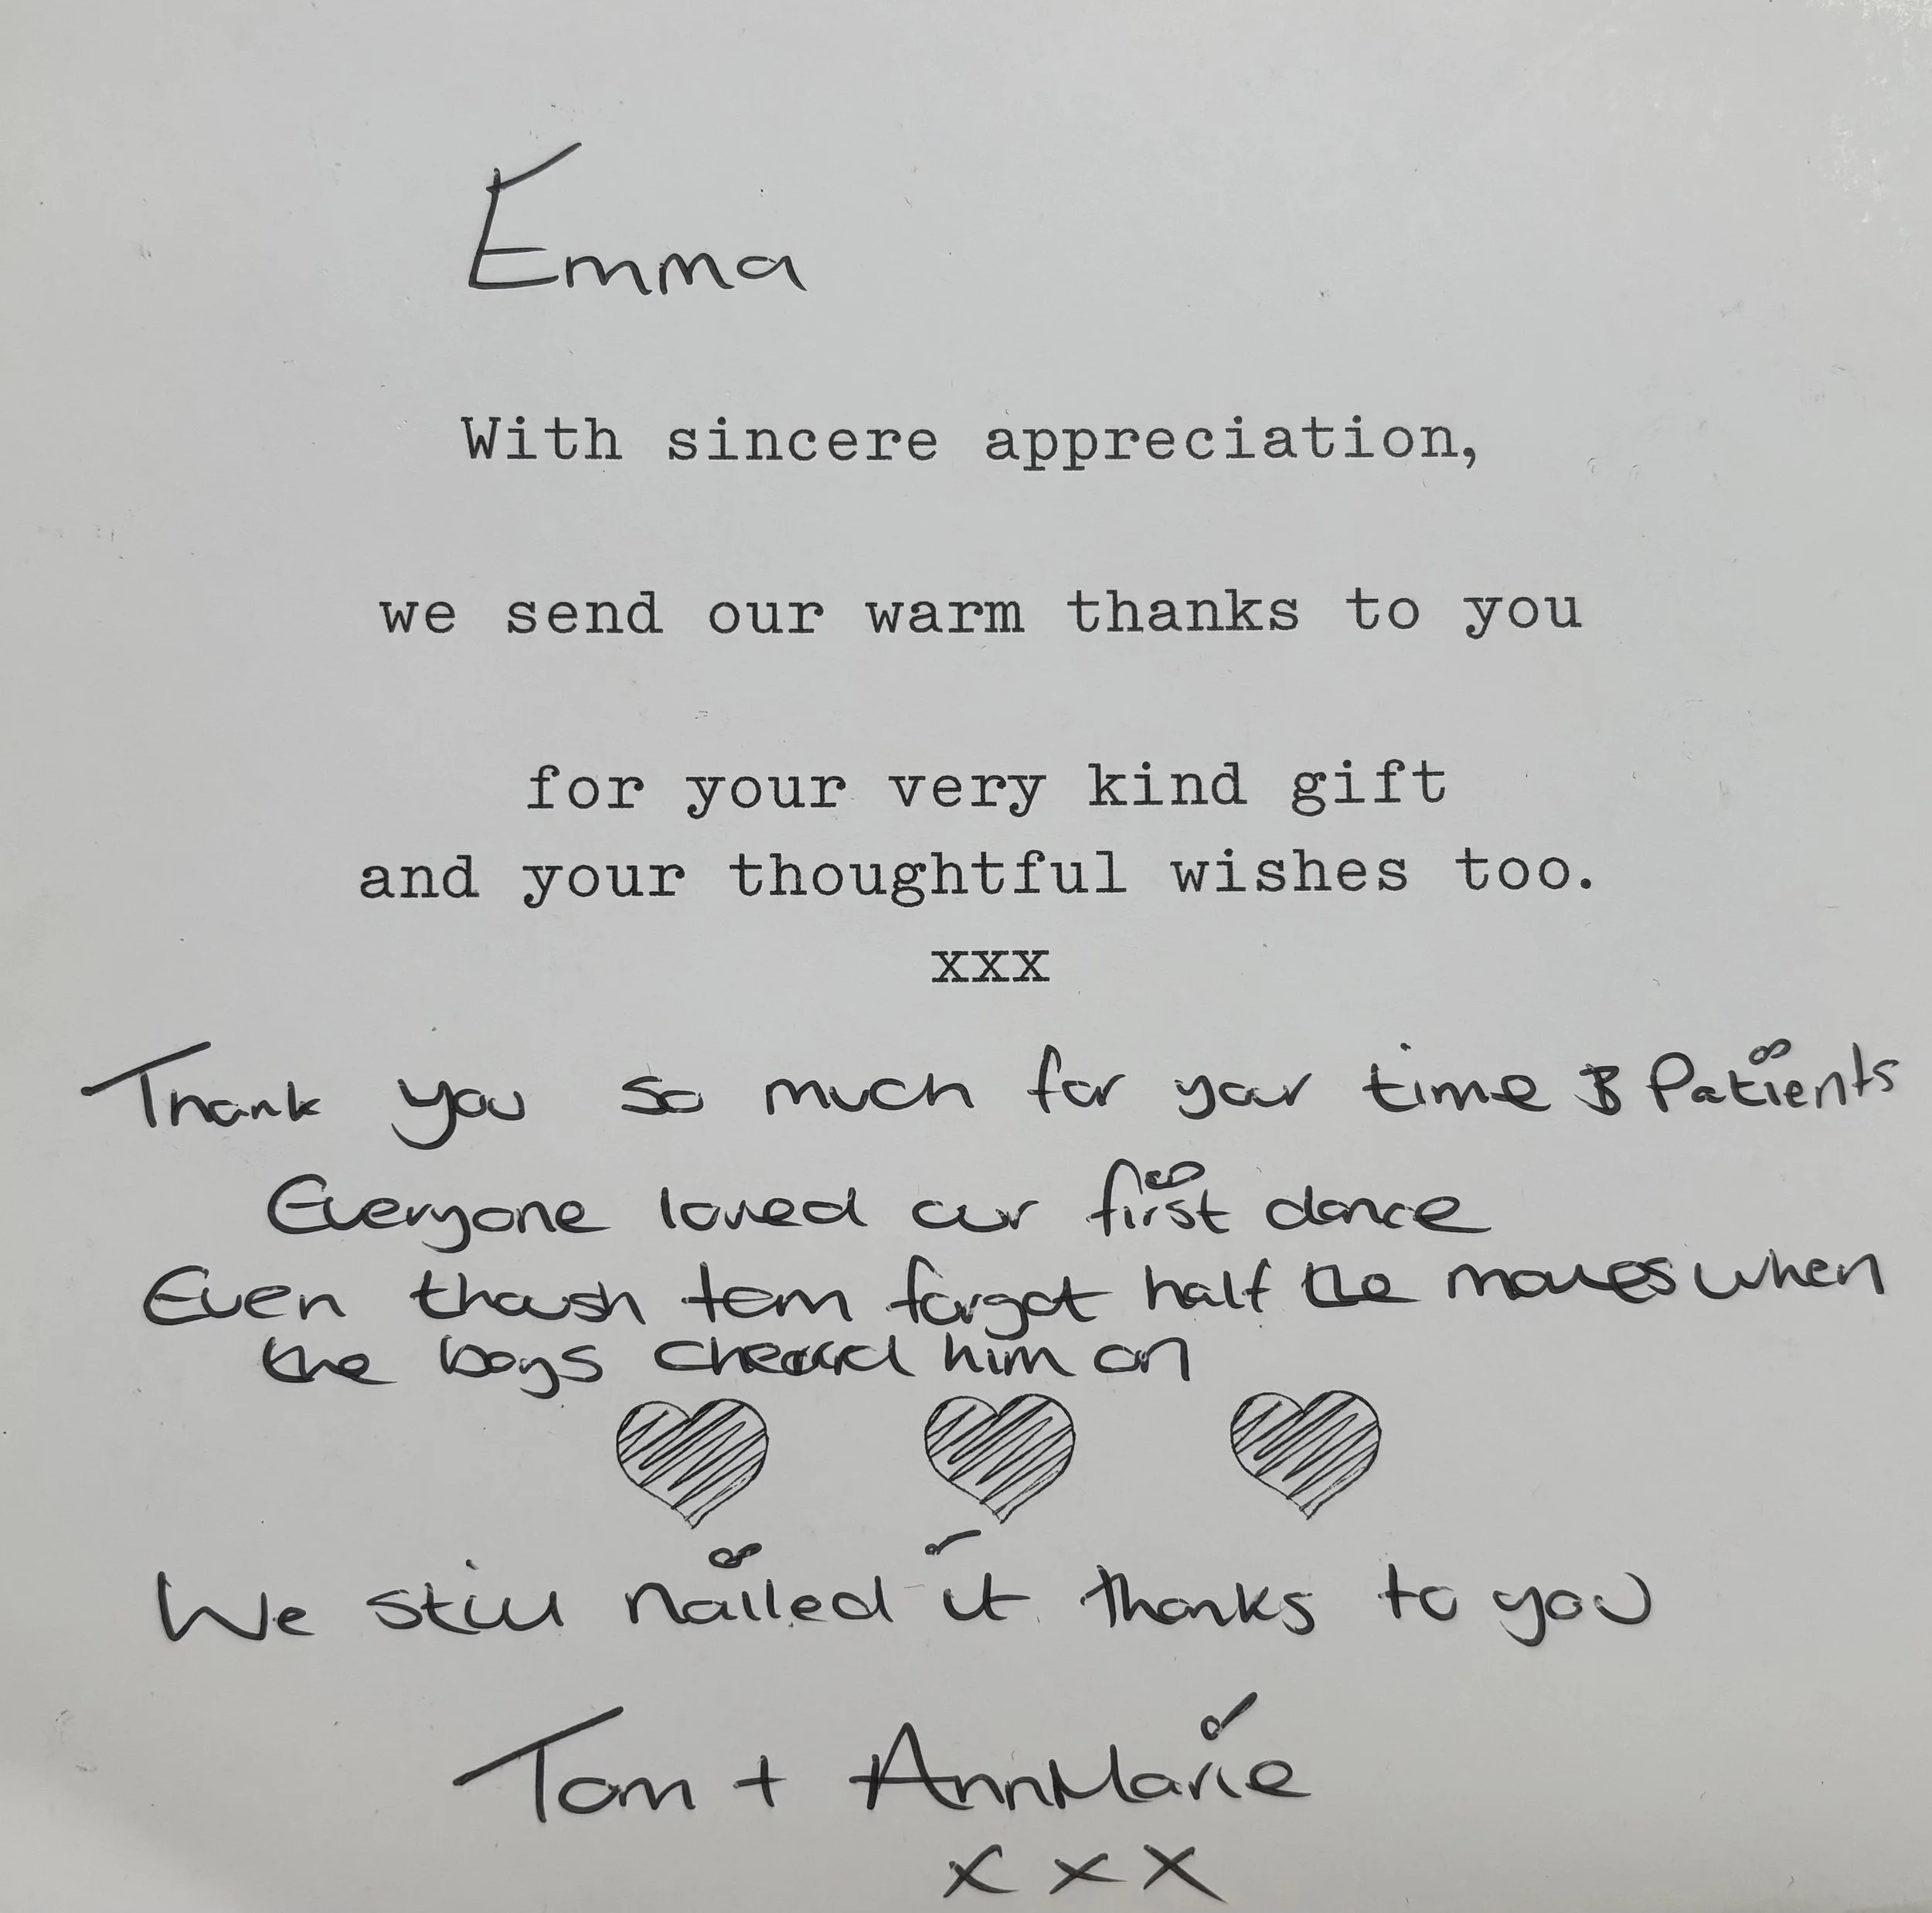 Emma
With sincere appreciation,
we send our warm thanks to you
for your very kind gift
and your thoughtful wishes too.
xxx
Thank you so much for your time & Patients
Everyone loved our first dance
Even though tom forgot half the moves when
the boys cheered him on
We still nailed it thanks to you
Tom + AnnMarie
x x x